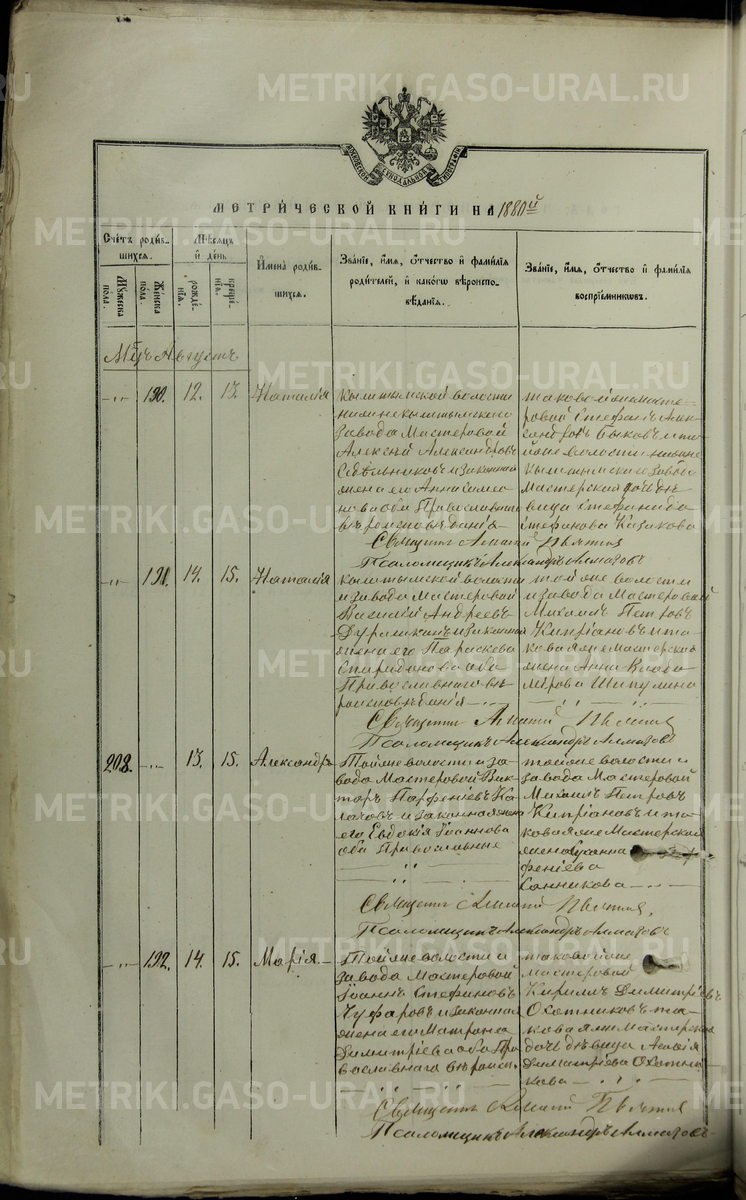 METRIKI.GASO-URAL.RU
МОСКОВСКОЙ СИНОДАЛЬНОЙ ТИПОГРАФІИ
МЕТРИ́ЧЕСКОЙ КНИ́ГИ НА 1880й
Счетъ роди́в-шихся.
Мꙋжеска пола.
Же́нска по́ла.
Мѣ́сяцъ и҆ де́нь
рожде́-нїѧ.
креще́-нїѧ.
И҆мена̀ роди́в-шихсѧ.
Зва́нїе, и҆́мѧ, ѻ҆́тчество и҆ фами́лїѧ
роди́телей, и҆ како́гѡ вѣроиспо-
вѣ́данїѧ.
Зва́нїе, и҆́мѧ, ѻ҆́тчество и҆ фами́лїѧ
воспрїе́мникѡвъ.
Мцъ Августъ
190. 12. 13. Наталія
Кыштымской волости
нижнекыштымскаго
завода Мастеровой
Алексѣй Александровъ
Сѣдѣльниковъ и законная
жена его Анна Симео-
нова оба Православнаго
вѣроисповѣданія
таковой же масте-
ровой Стефанъ Алек-
сандровъ Быковъ и то-
йже волости нижне
Кыштымскаго завода
Мастерская дочь дѣ-
вица Стефанида
Стефанова Казакова
Священникъ
Псаломщикъ Александръ Алмазовъ
191. 14. 15. Наталія
Кыштымской волости
и завода Мастеровой
Василій Андреевъ
и законная
жена его Параскева
Спиридонова оба
Православнаго вѣ-
роисповѣданія
той же волости
и завода Мастеровой
Михаилъ Петровъ
Кипріановъ и та-
ковая же Мастерская
жена Анна Влади-
мірова Шипулина
Священникъ
Псаломщикъ Александръ Алмазовъ
208. 13. 15. Александръ
Той же волости и за-
вода Мастеровой Вик-
торъ Парфеніевъ Ка-
лачовъ и законная жена
его Евдокія Іоаннова
оба Православные
той же волости и
завода Мастеровой
Михаилъ Петровъ
Кипріановъ и та-
ковая же Мастерская
жена
феніева
Санникова
Священникъ
Псаломщикъ Александръ Алмазовъ
192. 14. 15. Марія
Той же волости и
завода Мастеровой
Іоаннъ Стефановъ
Чуфаровъ и законная
жена его Матрона
Димитріева оба Пра-
вославнаго вѣроисп.
таковой же
мастеровой
Кириллъ Димитріевъ
Охотниковъ и та-
ковая же Мастерская
дочь дѣвица
Димитріева Охотни-
кова
Священникъ
Псаломщикъ Александръ Алмазовъ